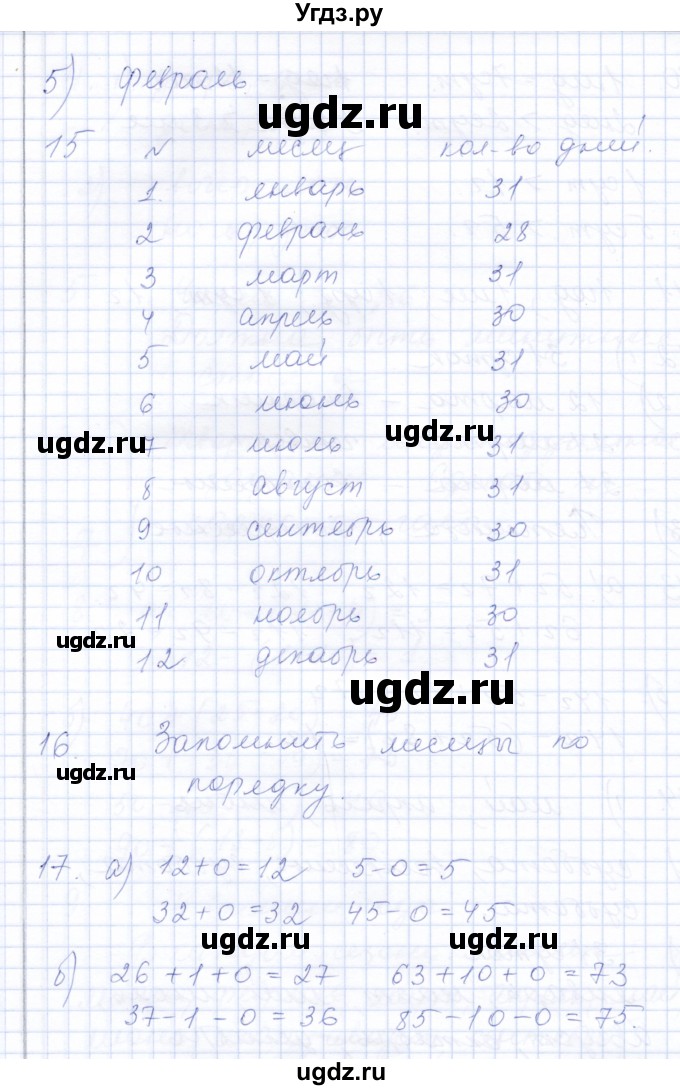 Угдз.ру
5) февраль
ugdz.ru
15 № месяц кол-во дней.
1. январь 31
2 февраль 28
3 март 31
4 апрель 30
5 май 31
6 июнь 30
ugdz.ru 7 июль ugdz.ru 31
8 август 31
9 сентябрь 30
10 октябрь 31
11 ноябрь 30
ugdz.ru
12 декабрь 31
ugdz.ru
16. Запомнить месяцы по
ugdz.ru порядку.
17. а) 12+0=12 5-0=5
32+0=32 45-0=45
ugdz.ru ugdz.ru
б) 26+1+0=27 63+10+0=73
37-1-0=36 85-10-0=75.
ugdz.ru